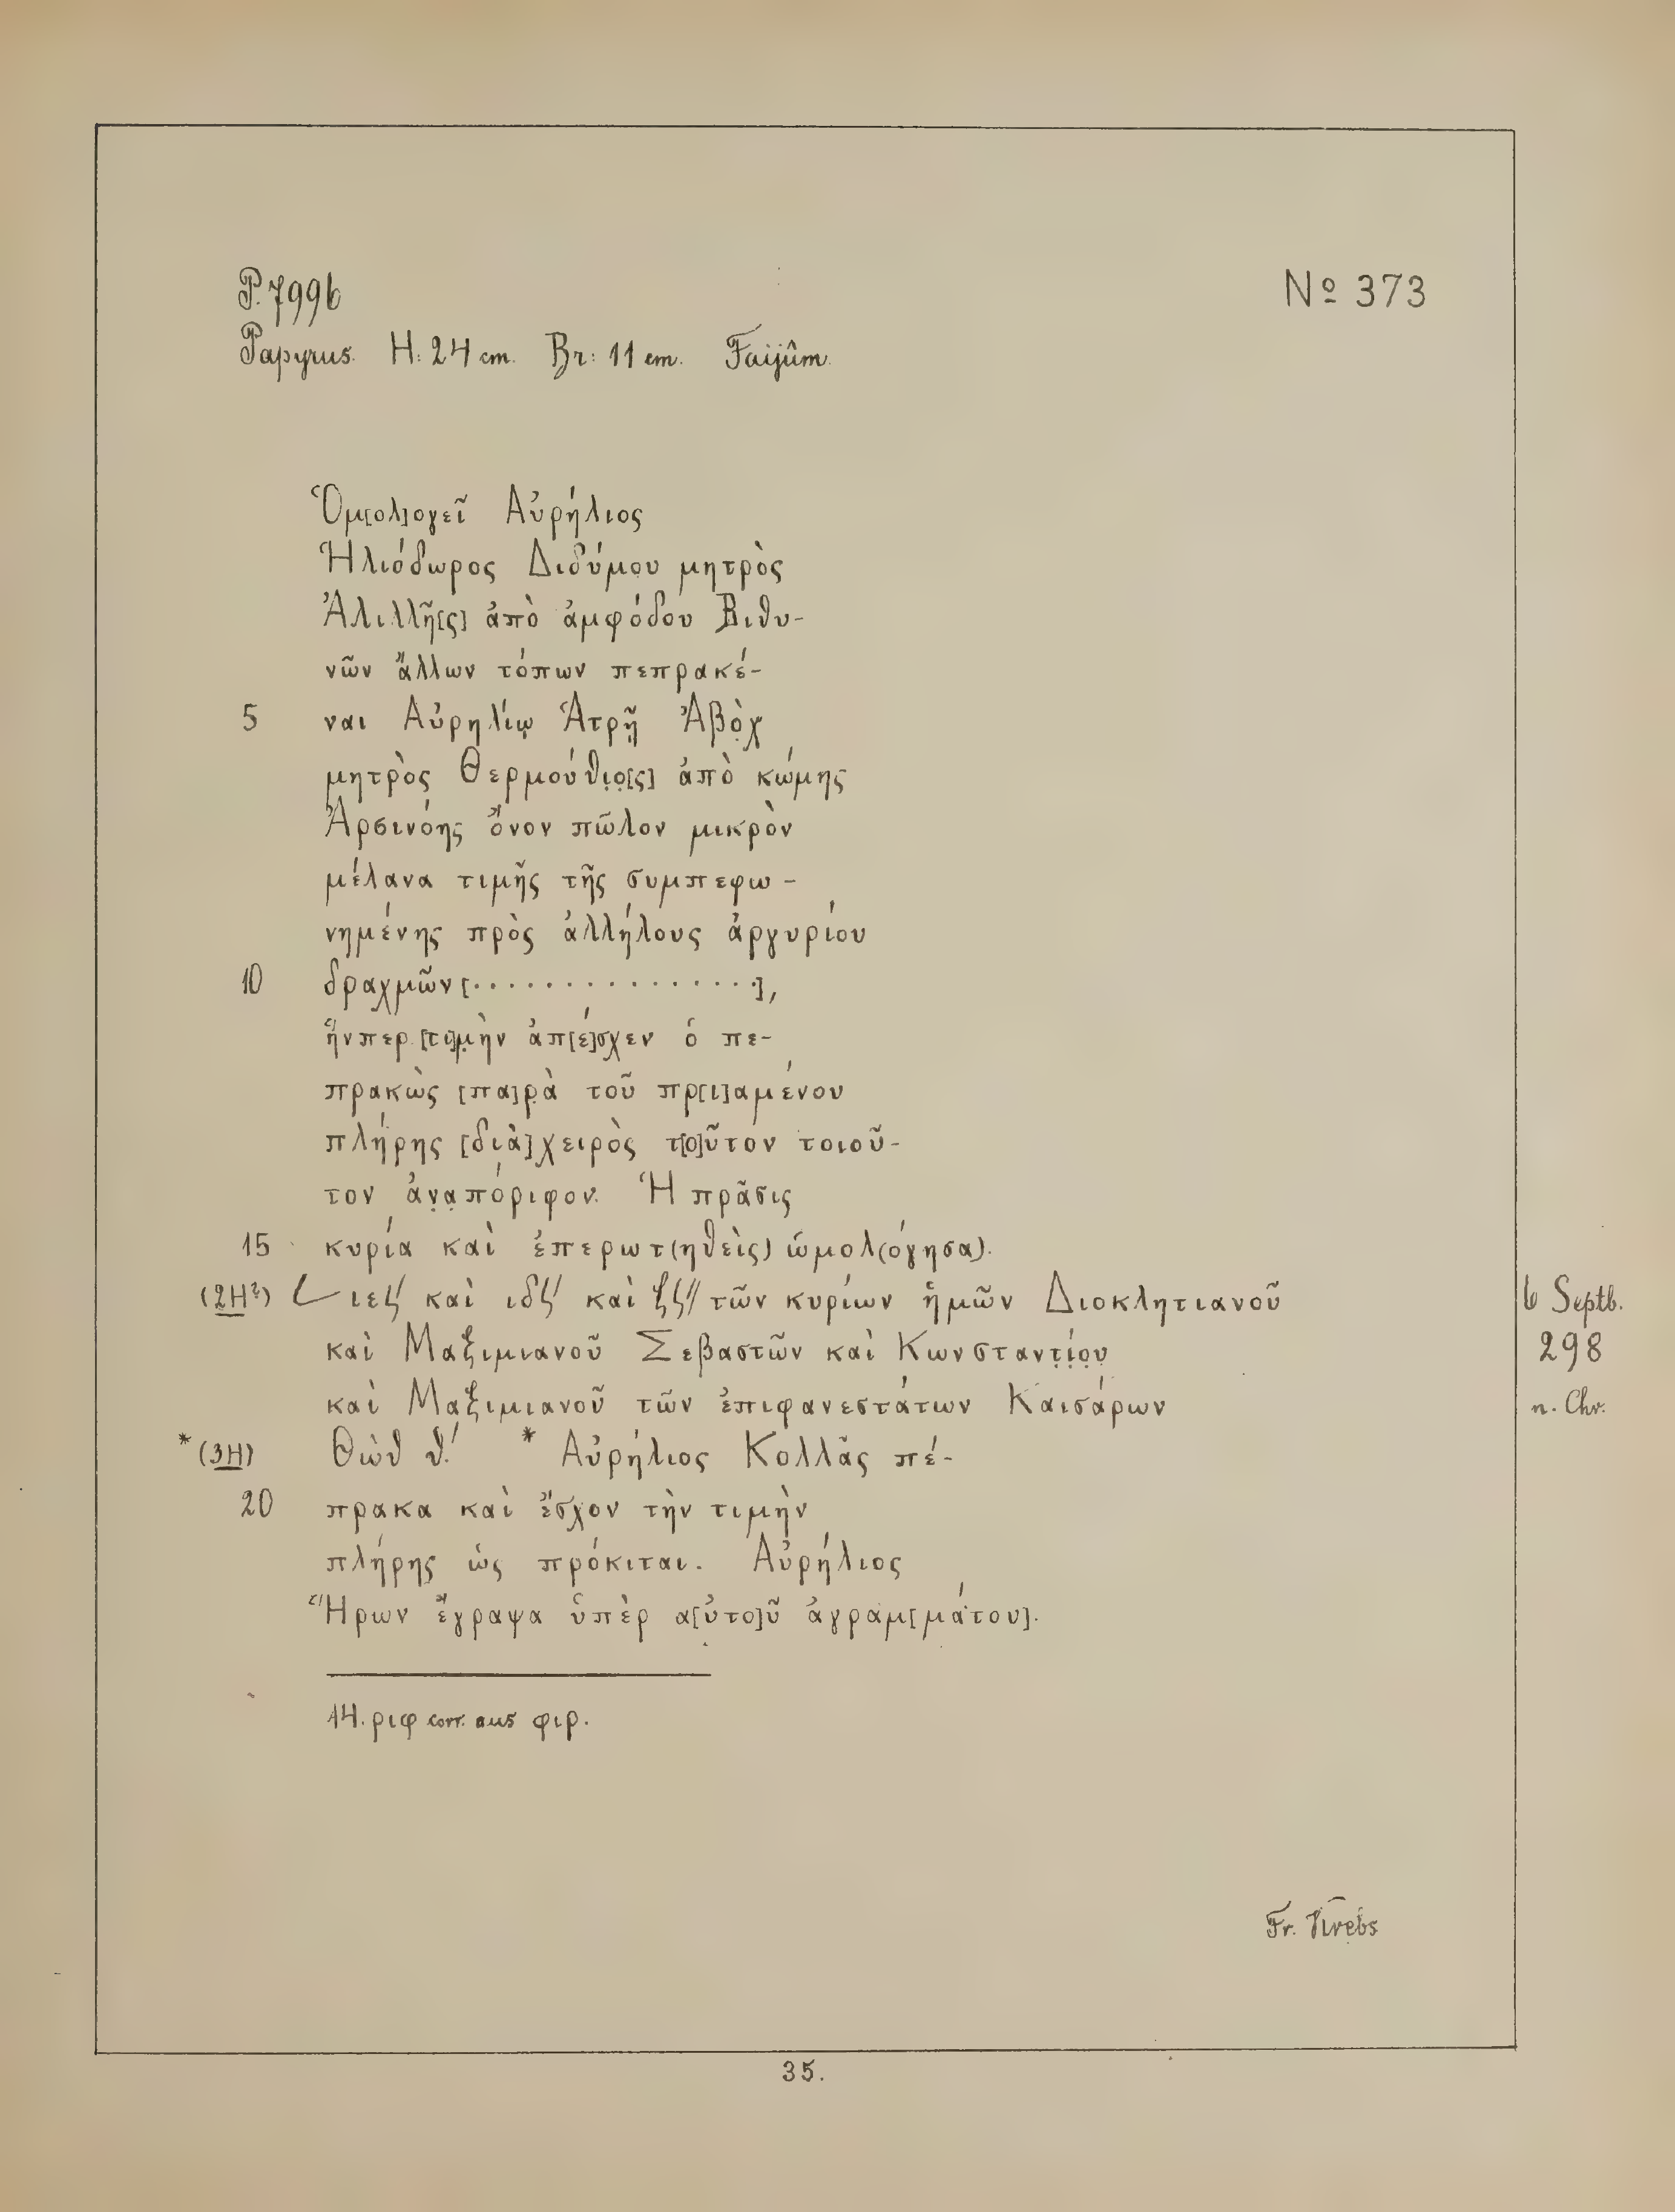 P. 7996 No 373
Papyrus. H: 24 cm. Br: 11 cm. Faijûm.
Ὁμ[ολ]ογεῖ Αὐρήλιος
Ἡλιόδωρος Διδύμου μητρὸς
Ἀλιλλῆ[ς] ἀπὸ ἀμφόδου Βιθυ-
νῶν ἄλλων τόπων πεπρακέ-
5 ναι Αὐρηλίῳ Ἁτρῇ Ἀβὸχ
μητρὸς Θερμούθιο[ς] ἀπὸ κώμης
Ἀρσινόης ὄνον πῶλον μικρὸν
μέλανα τιμῆς τῆς συμπεφω-
νημένης πρὸς ἀλλήλους ἀργυρίου
10 δραχμῶν [················],
ἥνπερ [τι]μὴν ἀπ[έ]σχεν ὁ πε-
πρακὼς [πα]ρὰ τοῦ πρ[ι]αμένου
πλήρης [διὰ] χειρὸς τ[ο]ῦτον τοιοῦ-
τον ἀναπόριφον. Ἡ πρᾶσις
15 κυρία καὶ ἐπερωτ(ηθεὶς) ὡμολ(όγησα).
(2H?) L ιεϚ/ καὶ ιδϚ/ καὶ ζϚ// τῶν κυρίων ἡμῶν Διοκλητιανοῦ 6 Septb.
καὶ Μαξιμιανοῦ Σεβαστῶν καὶ Κωνσταντίου 298
καὶ Μαξιμιανοῦ τῶν ἐπιφανεστάτων Καισάρων n. Chr.
* (3H) Θὼθ θ/. * Αὐρήλιος Κολλᾶς πέ-
20 πρακα καὶ ἔσχον τὴν τιμὴν
πλήρης ὡς πρόκιται. Αὐρήλιος
Ἥρων ἔγραψα ὑπὲρ α[ὐτο]ῦ ἀγραμ[μάτου].
14. ριφ corr. aus φιρ.
Fr. Krebs
35.